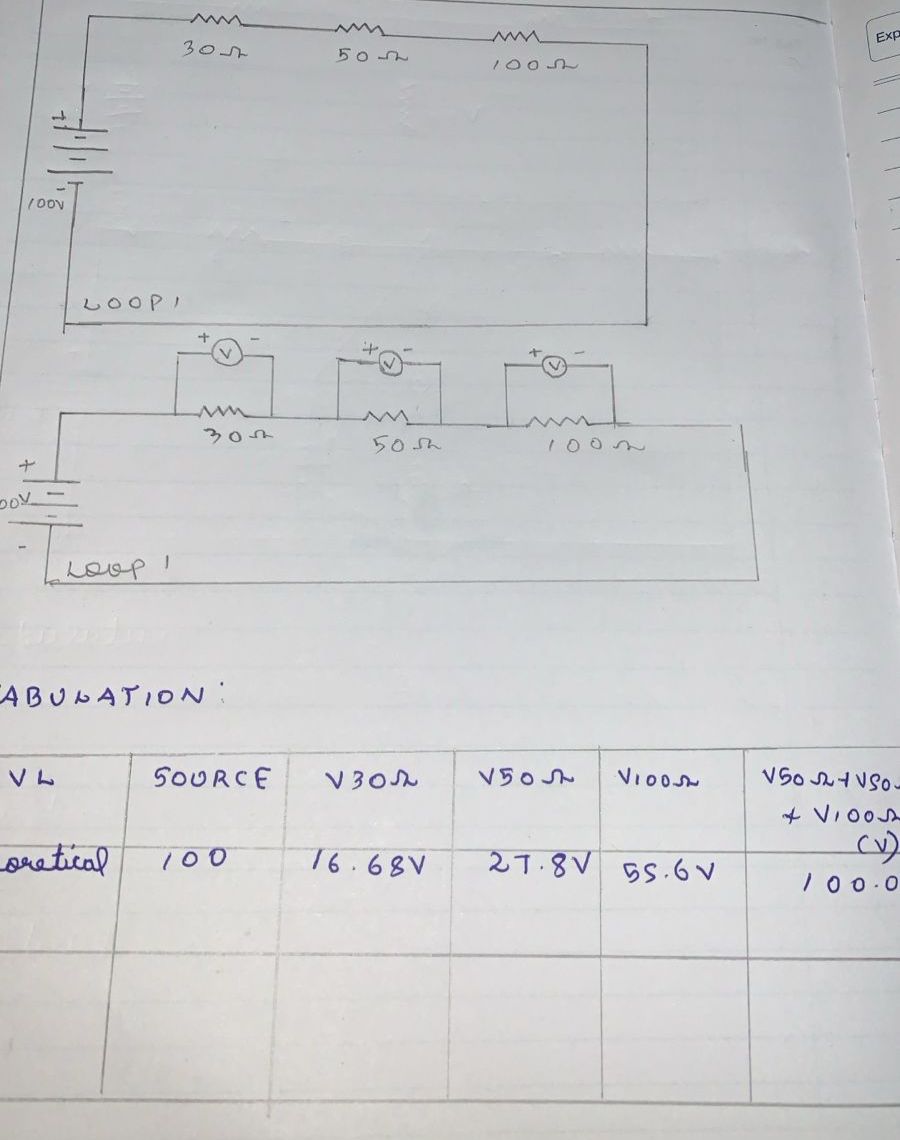 Exp
30Ω 50Ω 100Ω
+
-
100V
LOOP 1
+ V - + V - + V -
30Ω 50Ω 100Ω
+
00V
-
LOOP 1
ABULATION:
VL SOURCE V30Ω V50Ω V100Ω V50Ω+V50
+ V100Ω
(V)
oretical 100 16.68V 27.8V 55.6V 100.0